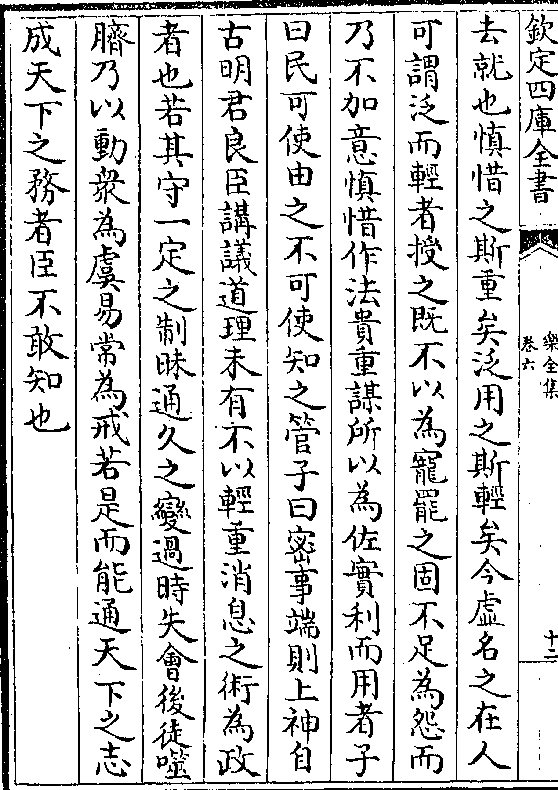 欽定四庫全書
樂全集
卷六
十二
去就也慎惜之斯重矣泛用之斯輕矣今虛名之在人
可謂泛而輕者授之既不以為寵罷之固不足為怨而
乃不加意慎惜作法貴重謀所以為佐實利而用者子
曰民可使由之不可使知之管子曰密事端則上神自
古明君良臣講議道理未有不以輕重消息之術為政
者也若其守一定之制昧通久之變過時失會後徒噬
臍乃以動衆為虞易常為戒若是而能通天下之志
成天下之務者臣不敢知也